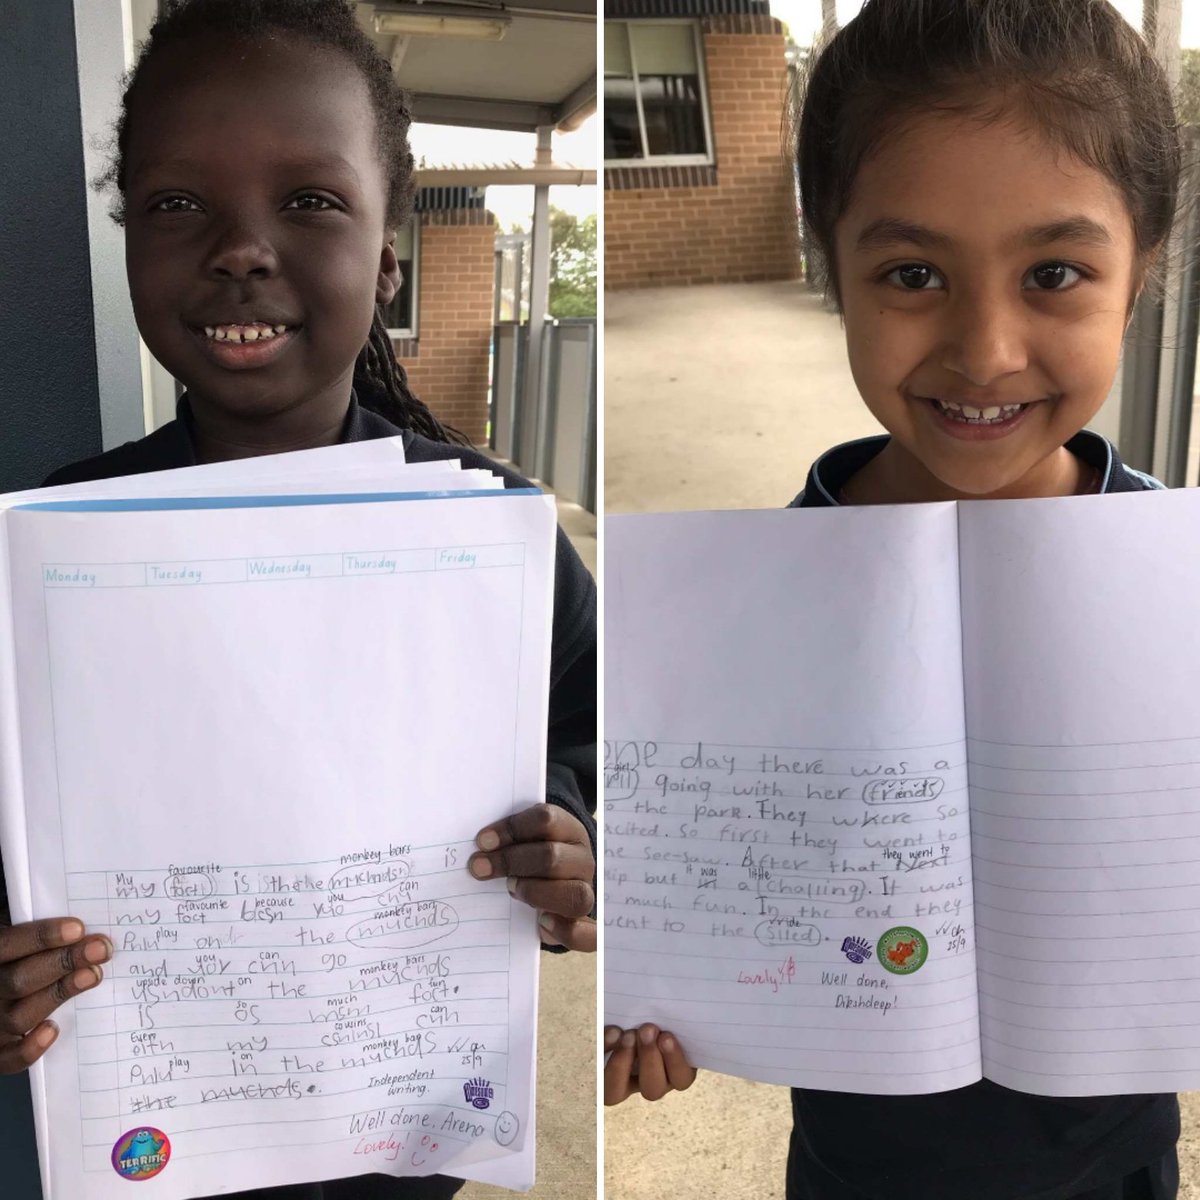 Monday Tuesday Wednesday Thursday Friday
My favourite monkey bars
my fact is is the the muchds is
favourite because you can
my foct bcsn yuo chy
play monkey bars
Phlu on the muchds
you can
and yoy chn go
upside down on monkey bars
usndont the muchds
so much fun
is os msm foct.
Even cousins can
eith my csnins chn
play on monkey bars
Phlu in the muchds
the muchds.
25/9
Independent writing.
Well done, Areno
Lovely!
TERRIFIC
one day there was a
girl
going with her friends
the park. They where so
xcited. So first they went to
he see-saw. After that Next
they went to
it was little
but in a challing. It was
much fun. In the end they
went to the Siled.
25/9
Lovely!
Well done,
Dikshdeep!